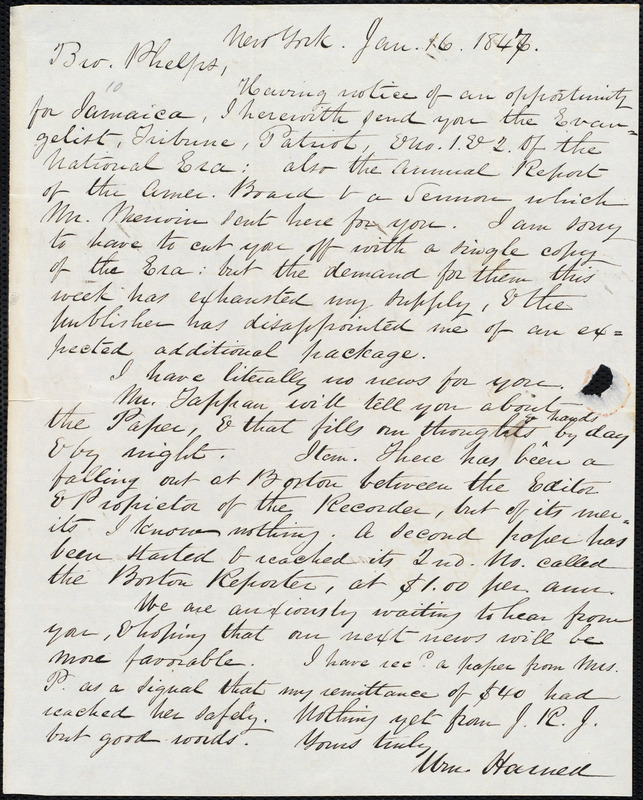 New York. Jan. 16. 1847.
Bro. Phelps,
Having notice of an opportunity
for Jamaica, I herewith send you the Evan-
gelist, Tribune, Patriot, & No. 1. & 2. of the
National Era: also the Annual Report
of the Amer. Board & a Sermon which
Mr. Merwin sent here for you. I am sorry
to have to cut you off with a single copy
of the Era: but the demand for them this
week has exhausted my supply, & the
publisher has disappointed me of an ex=
pected additional package.
I have literally no news for you.
Mr. Tappan will tell you about
the Paper, & that fills our thoughts & hands by day
& by night. Item. There has been a
falling out at Boston between the Editor
& Propietor of the Recorder, but of its mer-
its I know nothing. A second paper has
been started & reached its 2nd. No. called
the Boston Reporter, at $1.00 per ann.
We are anxiously waiting to hear from
you, & hoping that our next news will be
more favorable. I have recd. a paper from Mrs.
P. as a signal that my remittance of $40 had
reached her safely. Nothing yet from J. K. J.
but good words. Yours truly
Wm. Harned